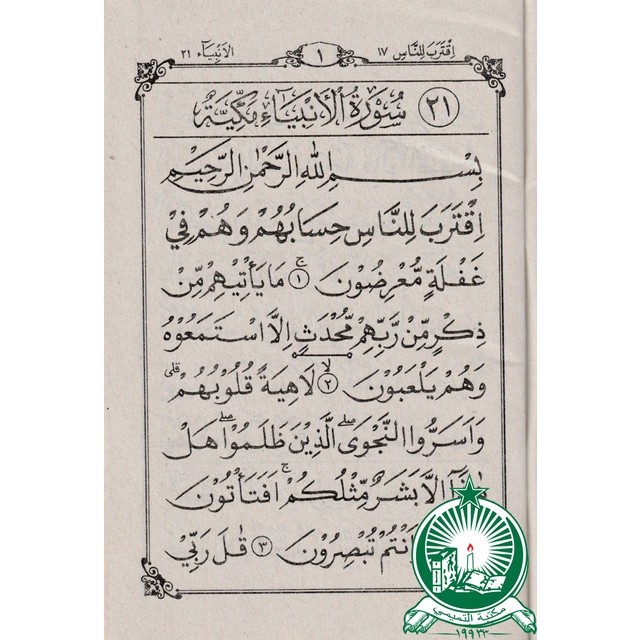 اِقْتَرَبَ لِلنَّاسِ ١٧
١
الاَنْبِيَاء ٢١
٢١ سُوْرَةُ الْاَنْبِيَاءِ مَكِّيَّةٌ
بِسْمِ اللهِ الرَّحْمٰنِ الرَّحِيْمِ
اِقْتَرَبَ لِلنَّاسِ حِسَابُهُمْ وَهُمْ فِيْ
غَفْلَةٍ مُّعْرِضُوْنَ ۚ ١ مَا يَأْتِيْهِمْ مِّنْ
ذِكْرٍ مِّنْ رَّبِّهِمْ مُّحْدَثٍ اِلَّا اسْتَمَعُوْهُ
وَهُمْ يَلْعَبُوْنَ ۙ ٢ لَاهِيَةً قُلُوْبُهُمْ ۗ
وَاَسَرُّوا النَّجْوَى ۖ الَّذِيْنَ ظَلَمُوْا ۖ هَلْ
هٰذَآ اِلَّا بَشَرٌ مِّثْلُكُمْ ۚ اَفَتَأْتُوْنَ
اَنْتُمْ تُبْصِرُوْنَ ٣ قٰلَ رَبِّيْ
مكتبة التميمي